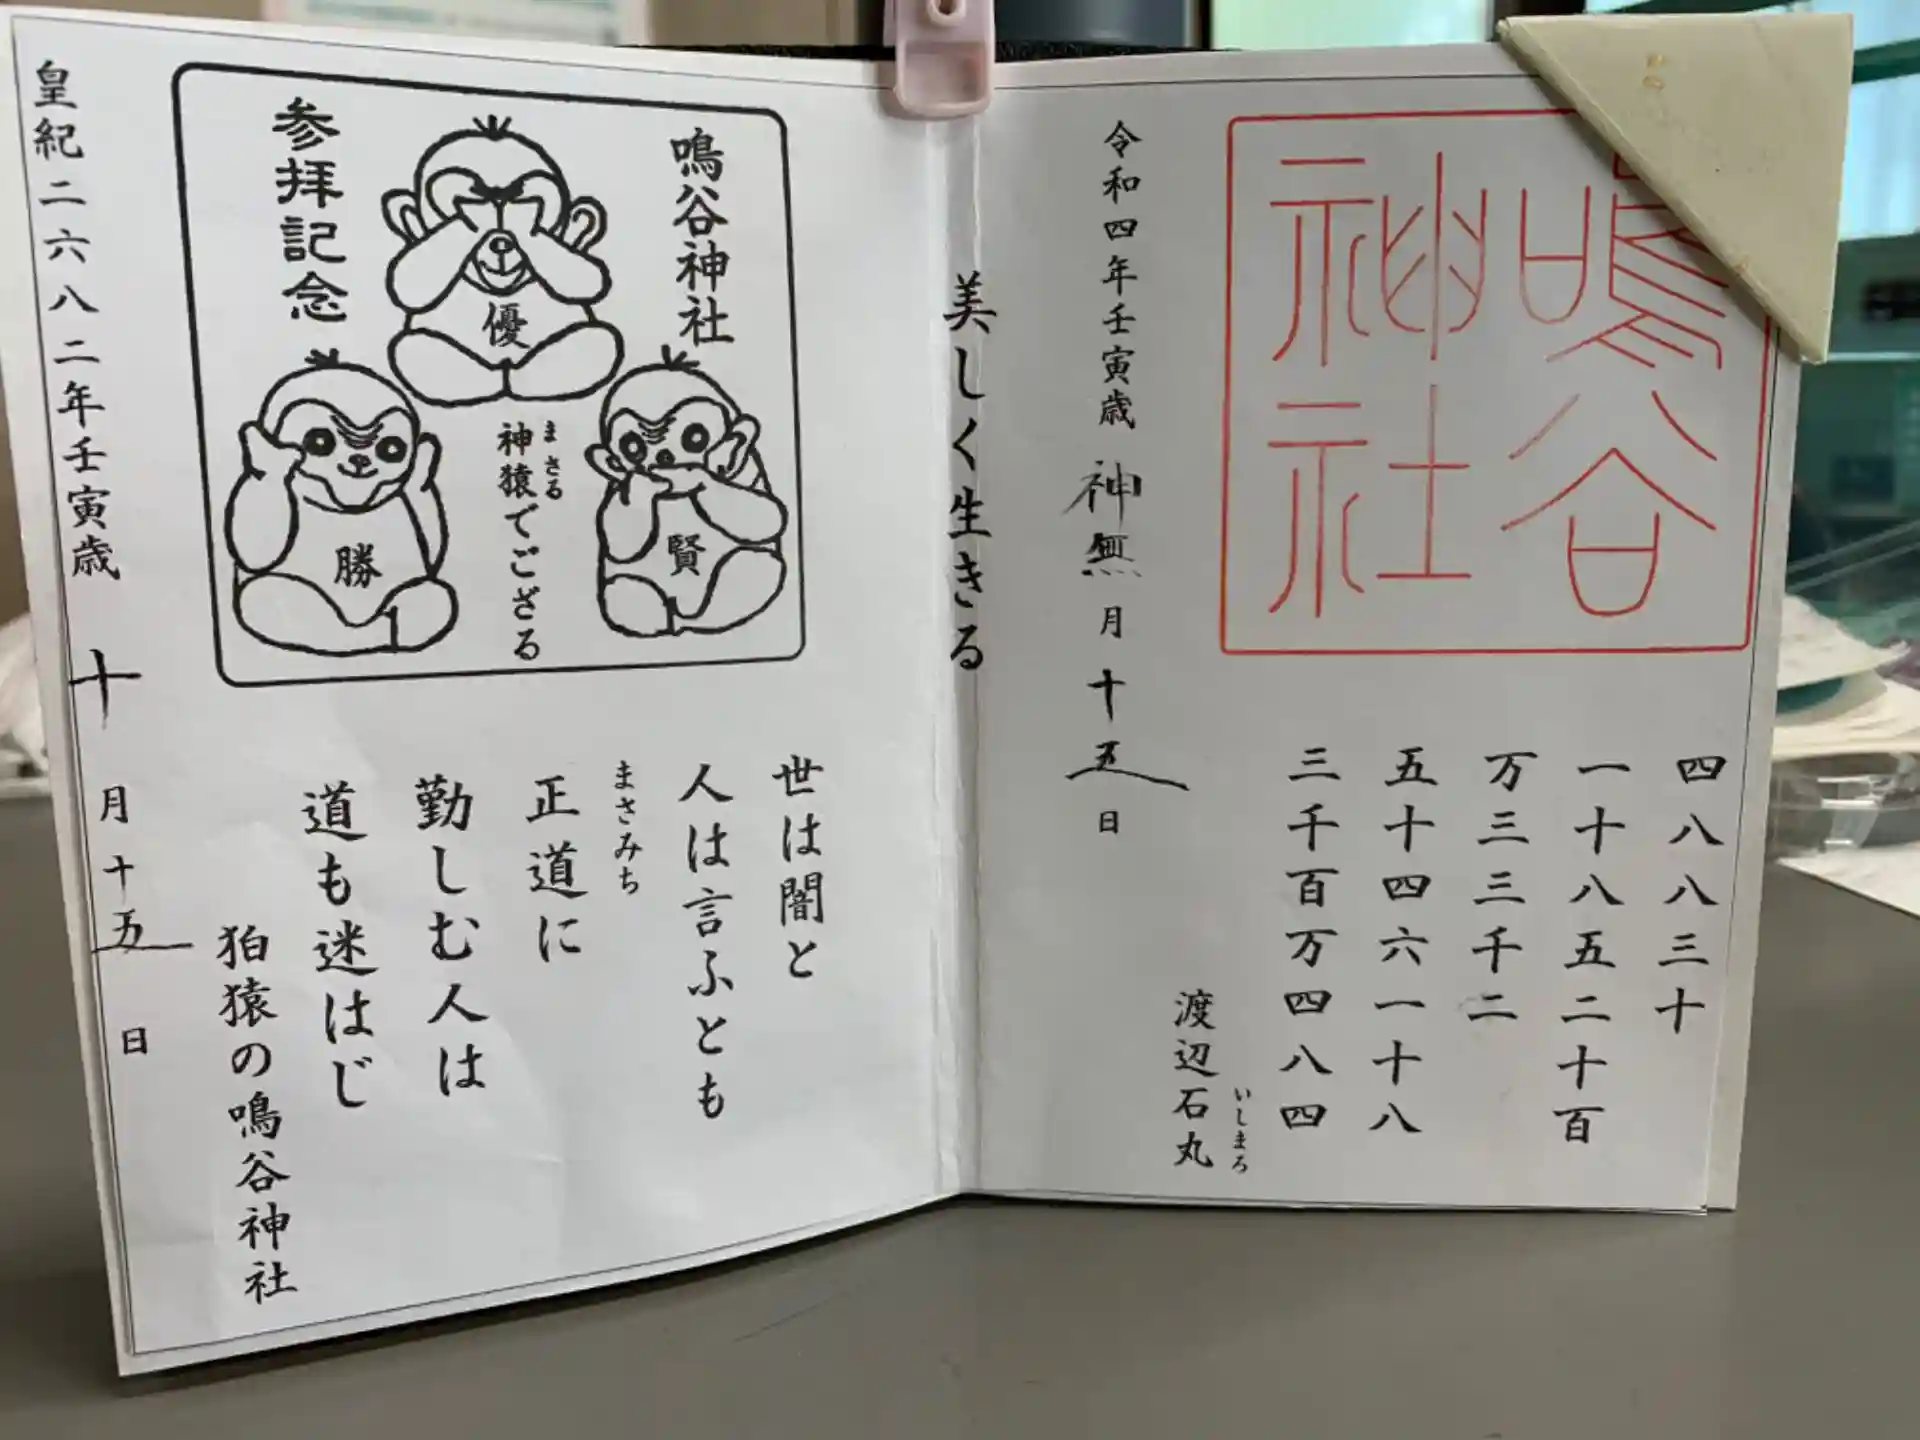 鳴谷
神社
四八八三十
一十八五二十百
万三三千二
五十四六一十八
三千百万四八四
いしまろ
渡辺石丸
令和四年壬寅歳 神無月十五日
美しく生きる
鳴谷神社
優
参拝記念
まさる
神猿でござる
賢
勝
世は闇と
人は言ふとも
まさみち
正道に
勤しむ人は
道も迷はじ
狛猿の鳴谷神社
皇紀二六八二年壬寅歳 十月十五日